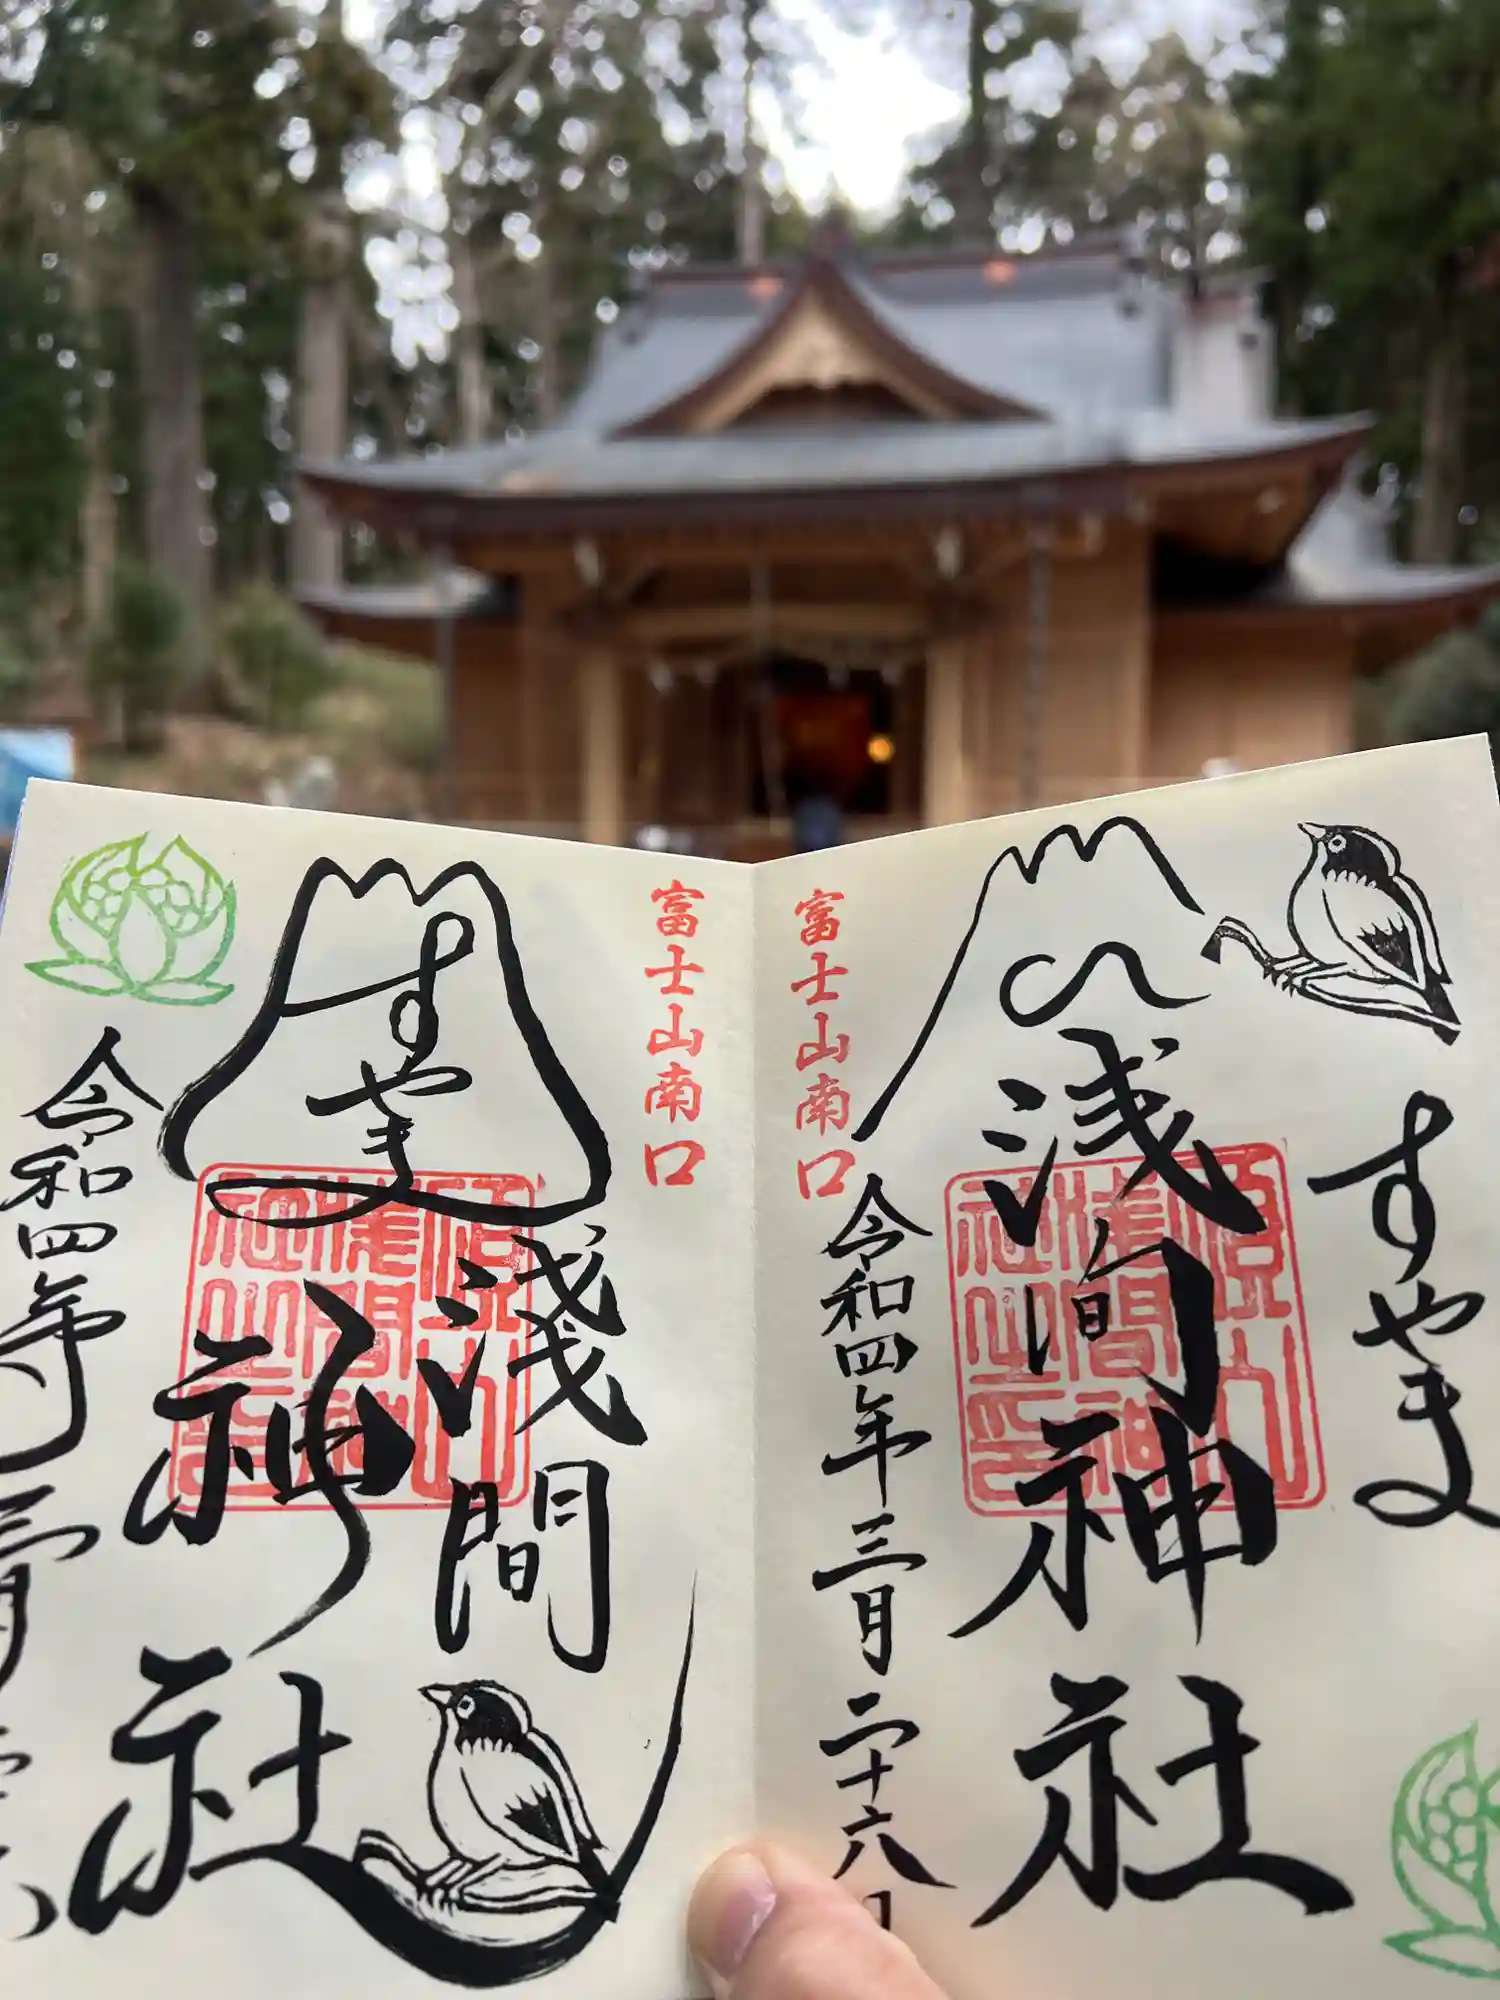 富士山南口
すやま
浅间神社
令和四年三月二十六日
富士山南口
すやま
淺間
神社
令和四年三月